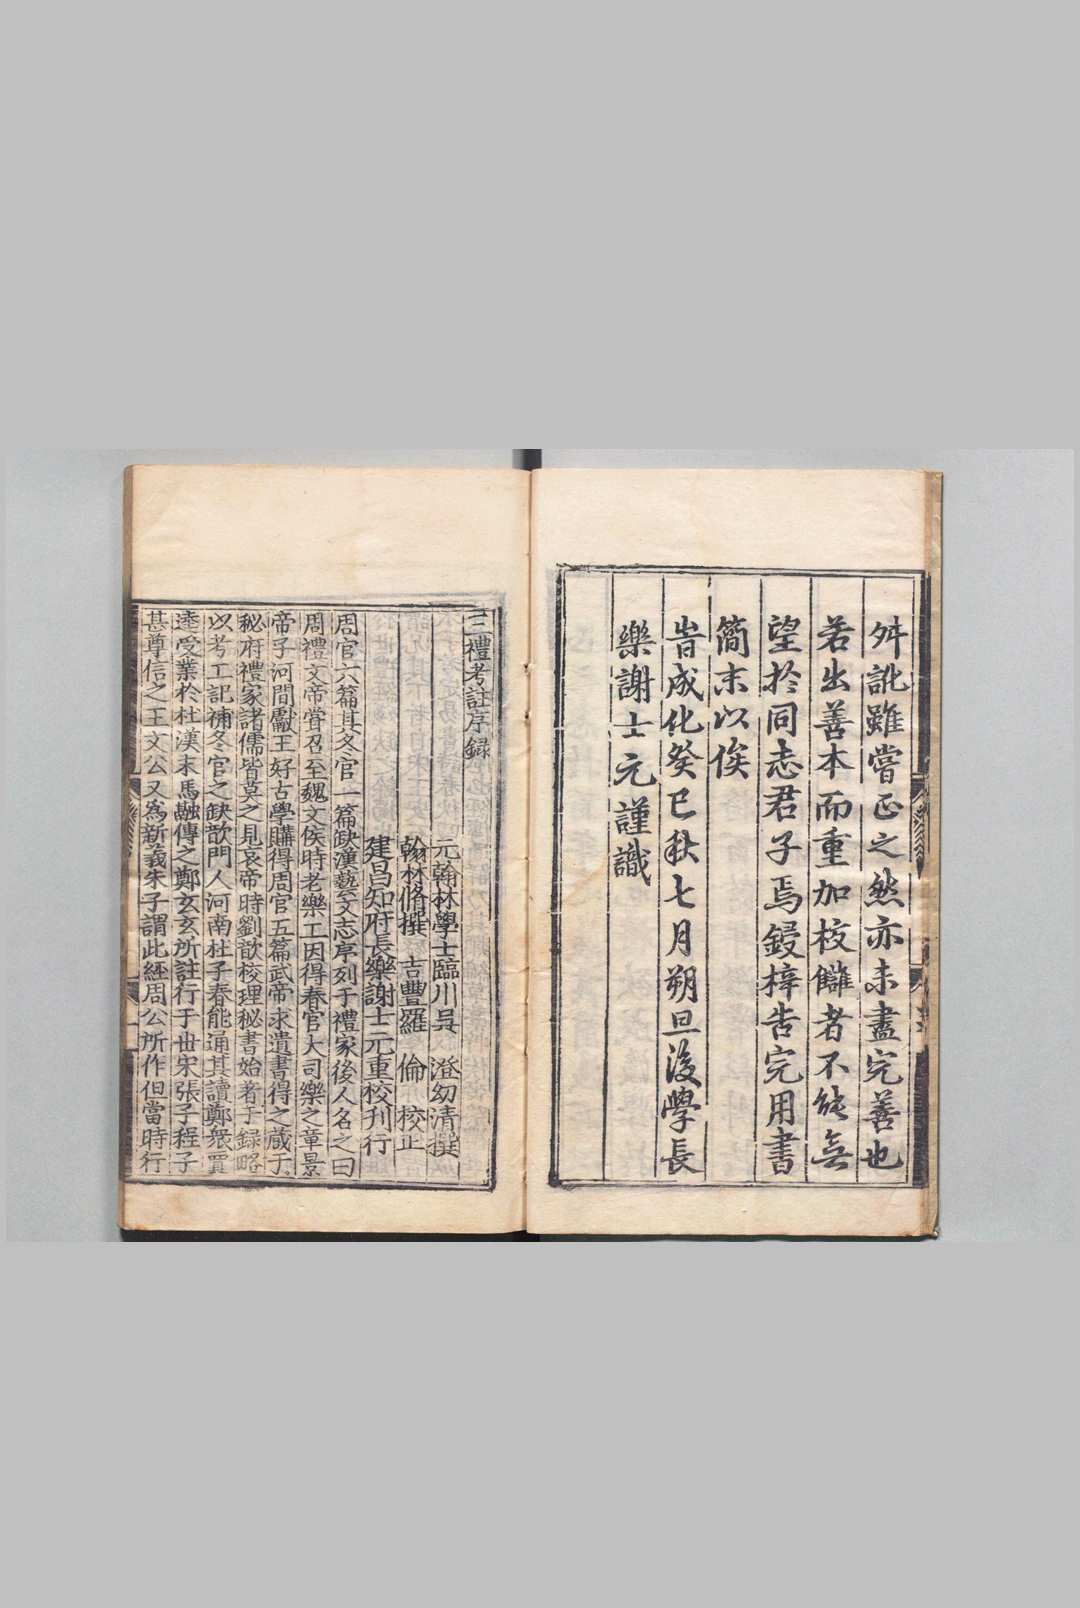 舛訛雖嘗正之然亦未盡完善也
若出善本而重加校讎者不能無
望於同志君子焉鋟梓告完用書
簡末以俟
旹成化癸巳秋七月朔旦後學長
樂謝士元謹識
三禮考註序録
元翰林學士臨川吳 澄幼清撰
翰林脩撰 吉豐羅 倫 校正
建昌知府長樂謝士元重校刊行
周官六篇其冬官一篇缺漢藝文志序列于禮家後人名之曰
周禮文帝嘗召至魏文侯時老樂工因得春官大司樂之章景
帝子河間獻王好古學購得周官五篇武帝求遺書得之蔵于
秘府禮家諸儒皆莫之見哀帝時劉歆校理秘書始著于録略
以考工記補冬官之缺歆門人河南杜子春能通其讀鄭衆賈
逵受業於杜漢末馬融傳之鄭玄玄所註行于世宋張子程子
甚尊信之王文公又爲新義朱子謂此經周公所作但當時行